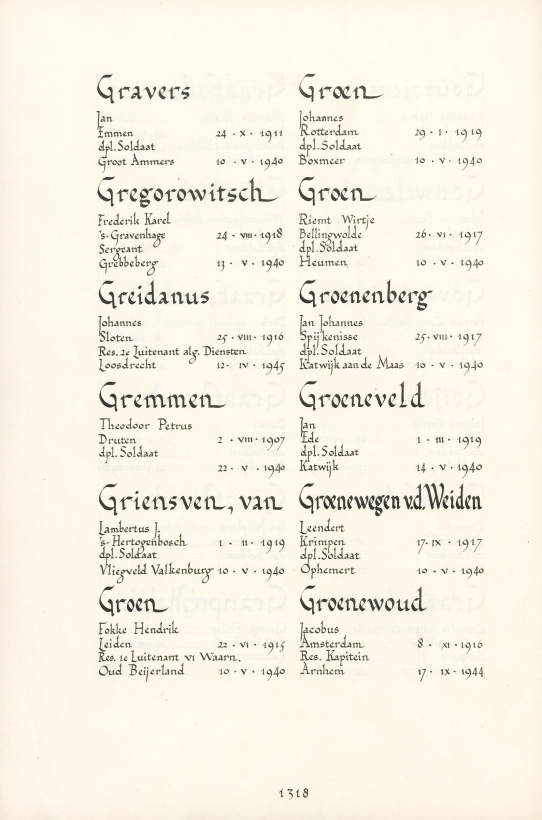 Gravers
Jan
Emmen 24 · X · 1911
dpl. Soldaat
Groot Ammers 10 · V · 1940
Gregorowitsch
Frederik Karel
's-Gravenhage 24 · VIII · 1918
Sergeant
Grebbeberg 13 · V · 1940
Greidanus
Johannes
Sloten 25 · VIII · 1916
Res. 2e Luitenant alg. Diensten
Loosdrecht 12 · IV · 1945
Gremmen
Theodoor Petrus
Druten 2 · VIII · 1907
dpl. Soldaat
22 · V · 1940
Griensven, van
Lambertus J.
's-Hertogenbosch 1 · II · 1919
dpl. Soldaat
Vliegveld Valkenburg 10 · V · 1940
Groen
Fokke Hendrik
Leiden 22 · VI · 1915
Res. 1e Luitenant v1 Waarn.
Oud Beijerland 10 · V · 1940
Groen
Johannes
Rotterdam 29 · I · 1919
dpl. Soldaat
Boxmeer 10 · V · 1940
Groen
Riemt Wirtje
Bellingwolde 26 · VI · 1917
dpl. Soldaat
Heumen 10 · V · 1940
Groenenberg
Jan Johannes
Spijkenisse 25 · VIII · 1917
dpl. Soldaat
Katwijk aan de Maas 10 · V · 1940
Groeneveld
Jan
Ede 1 · III · 1919
dpl. Soldaat
Katwijk 14 · V · 1940
Groenewegen v.d. Weiden
Leendert
Krimpen 17 · IX · 1917
dpl. Soldaat
Ophemert 10 · V · 1940
Groenewoud
Jacobus
Amsterdam 8 · XI · 1916
Res. Kapitein
Arnhem 17 · IX · 1944
1318